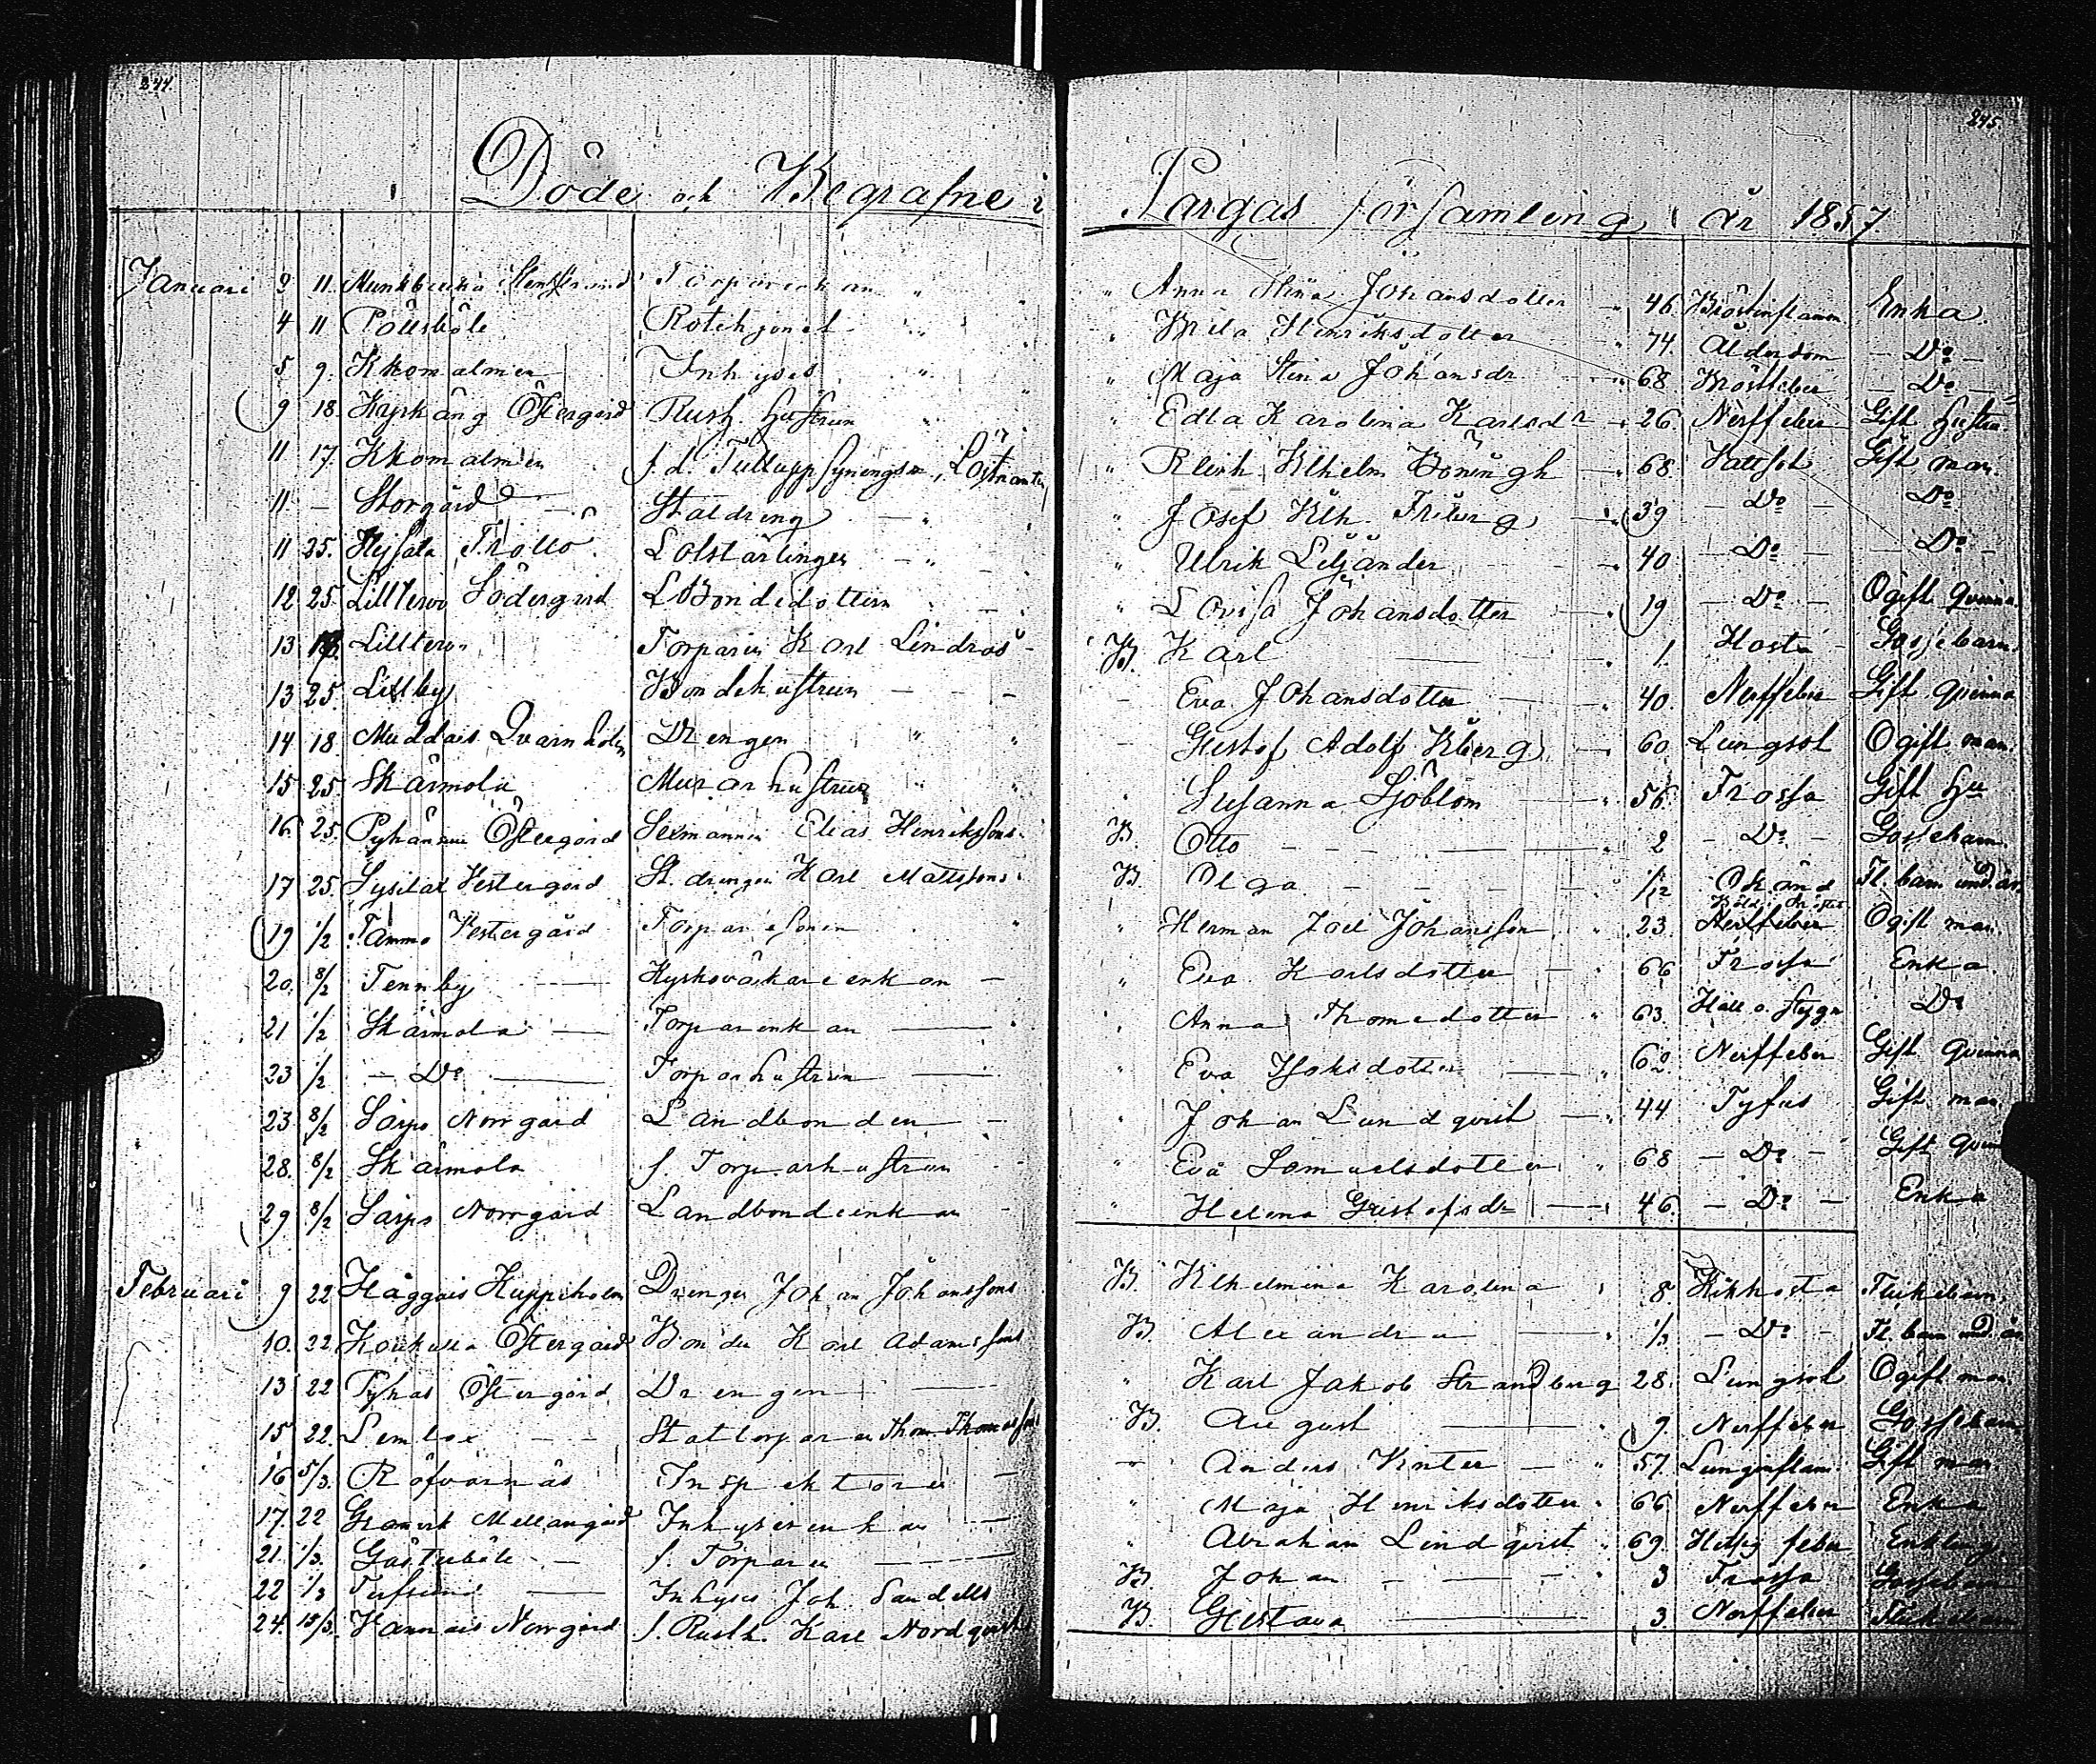 244.
245.
Döde och Begrafne i Pargas församling år 1857.
Januari 3 11. Munkbacka Torparenkan " Anna Stina Johansdotter 46 Bröstinflamm. Enka
4 11 Pällsböle Rotehjonet " Brita Henriksdotter 74. Ålderdom Do
5 9. Kkomalmen Inhyses " Maja Stina Johansdr 68 Bröstfeber Do
9 18. Kyrkäng Östergård Rusth. hustrun " Edla Karolina Karlsdr 26 Nerffeber Gift hustru
11 17. Kkomalmen f.d. Tulluppsyningsm, Löjtnanten " Wilhelm 68. Vattsot Gift man.
11 — Storgård Staldreng " Josef Wilh. Friberg 39 Do Do
11 25. Trollo Lotslärlingen " Ulrik Liljander 40 Do Do
12 25 Lilltervo Södergård LBondedottern " Lovisa Johansdotter 19 Do Ogift qvinna
13 18. Lilltervo Torparen Karl Lindroos B. Karl 1. Hosta Gossebarn.
13 25. Lillby Bondehustrun Eva Johansdotter 40. Nerffeber Gift qvinna
14 18. Muddais Qvarnholm Drengen Gustof Adolf 60 Lungsot Ogift man.
15 25. Skärmola Murarhustrun " Susanna Sjöblom 56 Trossa Gift hu
16 25. Östergård Elias Henrikssons B. Otto 2 Do Gossebarn
17 25. Sysilax Vestergård St. drengen Karl Mattssons B. Olga 1/12 Okänd Fl. barn und. år.
19 1/2 Tammo Vestergård Torparesonen " Herman Joel Johansson 23. Nerffeber Ogift man.
20. 8/2 Tennby Kyrkoväktareenkan " Eva Karlsdotter 66 Trossa Enka
21 1/2 Skärmola Torparenkan " Anna Thomedotter 63. Håll o. stygn Do
23 1/2 Do Torparhustrun " Eva Isaksdotter 60 Nerffeber Gift qvinna
23 8/2 Sarps Norrgård Landbonden " Johan Lundqvist 44 Tyfus Gift man
28. 8/2 Skärmola f. Torparhustrun " Eva Samuelsdotter 68 Do Gift qvin
29 8/2 Sarps Norrgård Landbondeenkan " Helena Gustafsdr 46. Do Enka
Februari 9 22 Häggais Kuppiholm Drengen Johan Johanssons B. Wilhelmina Karolina 8. Kikhosta Flickebarn.
10. 22. Östergård Bonden Karl Adamssons B. Alexandra 1/3 Do Fl. barn und. år
13 22 Pyhas Östergård Drengen " Karl Jakob Strandberg 28. Lungsot Ogift man
15 22. Lemlax Stattorparen Thom. Thomassons B. August 9. Nerffeber Gossebarn
16 5/3. Rofvarnäs Inspektoren Anders Vinter 57. Lunginflam. Gift man
17. 22 Granvik Mellangård Inhysesenkan " Maja Henriksdotter 66 Nerffeber Enka
21. 1/3. Gästerböle f. Torparen " Abraham Lindqvist 69. Hetsig feber Enkling
22 1/3 Inhyses Joh. Sandells B. Johan 3 Trossa Gossebarn
24. 15/3. Vannais Norrgård f. Rusth. Karl Nordqvists B. Gustava 3. Nerffeber Flickebarn